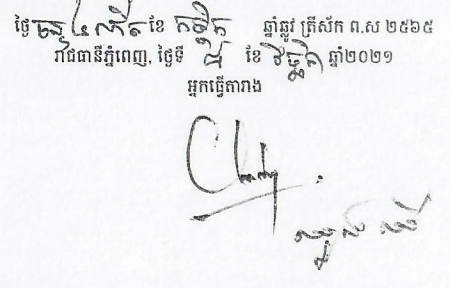 ថ្ងៃ ចន្ទ ៤ កើត ខែ កត្តិក ឆ្នាំឆ្លូវ ត្រីស័ក ព.ស ២៥៦៥
រាជធានីភ្នំពេញ, ថ្ងៃទី ៨ ខែ វិច្ឆិកា ឆ្នាំ២០២១
អ្នកធ្វើតារាង